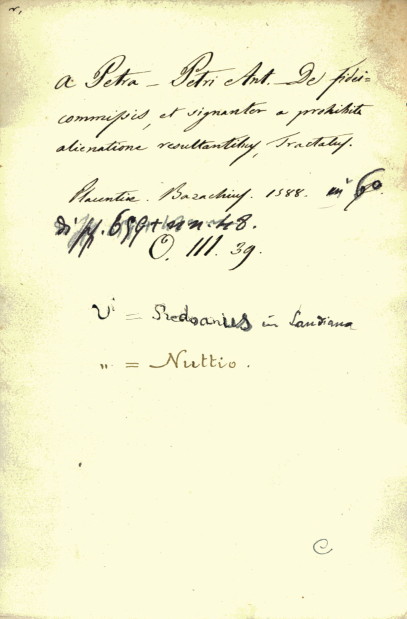 a Petra - Petri Ant. - De fidei=
commissis, et signanter a prohibita
alienatione resultantibus, Tractatus.
Placentiae. Bazachius. 1588. in fo.
di pp. 659 + nn 48.
O. III. 39.
Vi = Predoanus in Landiana
" = Nuttio.
C